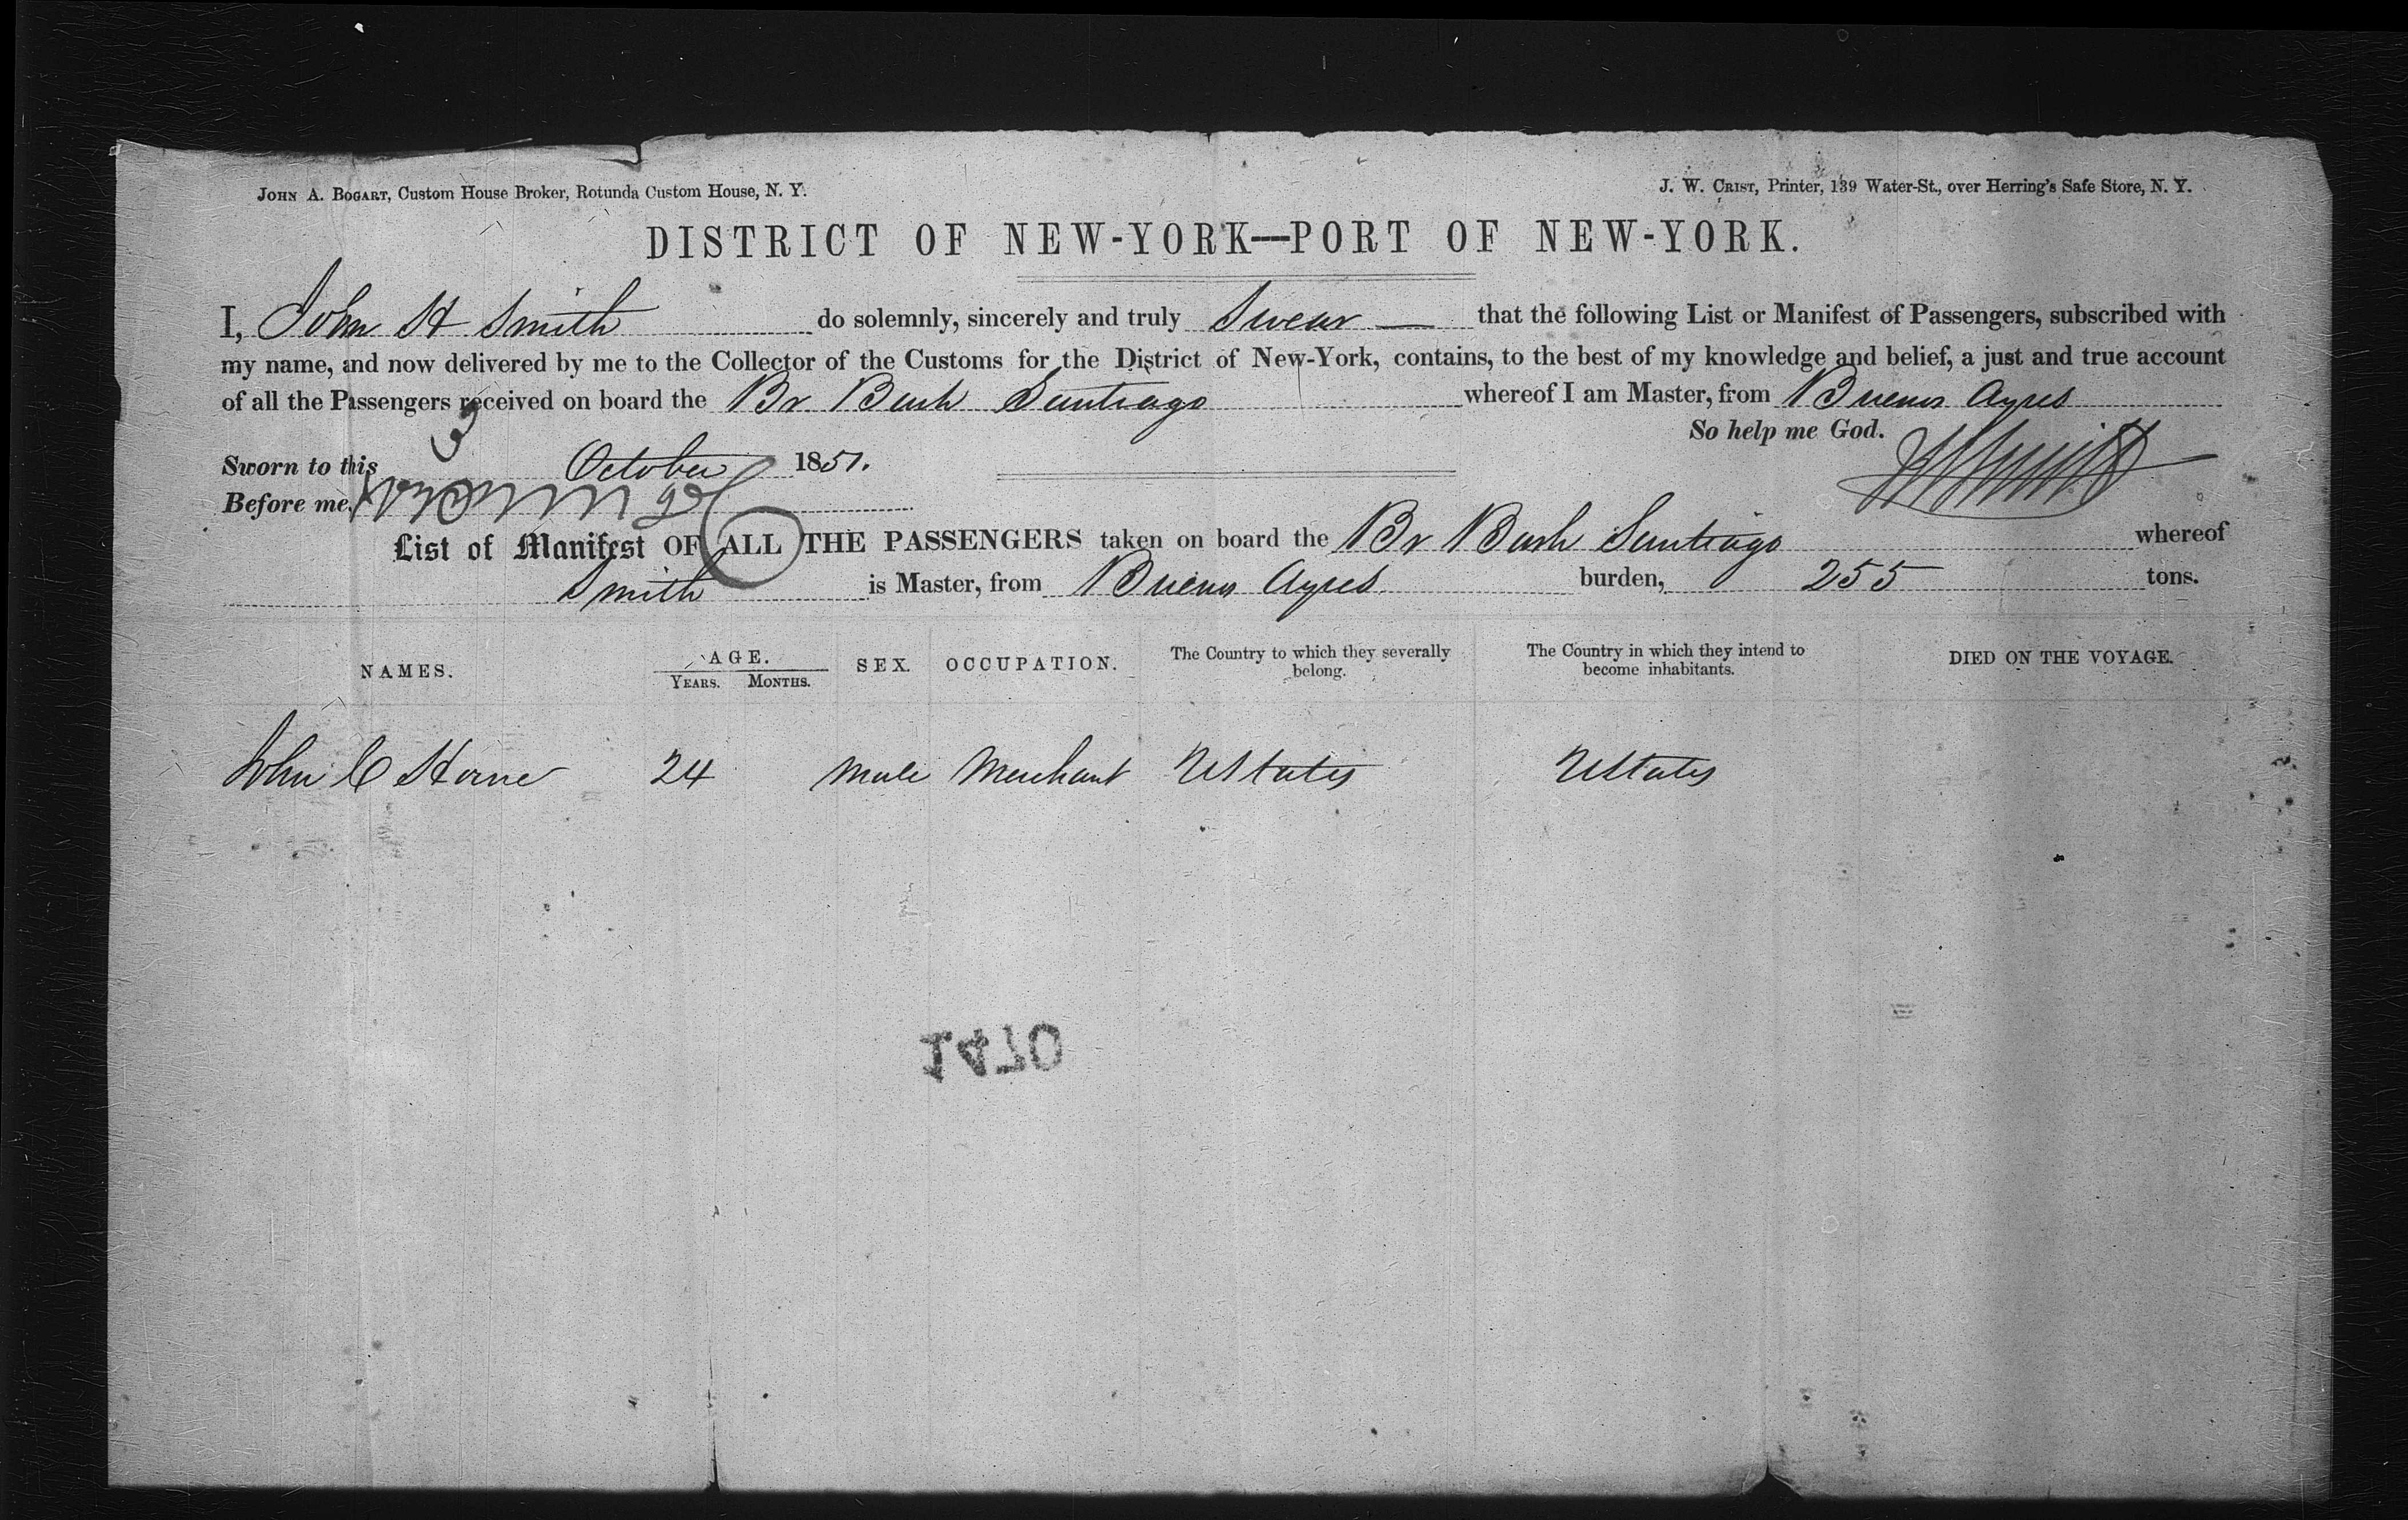 JOHN A. BOGART, Custom House Broker, Rotunda Custom House, N. Y.
J. W. CRIST, Printer, 139 Water-St., over Herring's Safe Store, N. Y.
DISTRICT OF NEW-YORK—PORT OF NEW-YORK.
I, John H Smith do solemnly, sincerely and truly Swear — that the following List or Manifest of Passengers, subscribed with
my name, and now delivered by me to the Collector of the Customs for the District of New-York, contains, to the best of my knowledge and belief, a just and true account
of all the Passengers received on board the Br Bark Santiago whereof I am Master, from Buenos Ayres
So help me God.
Sworn to this 3 October 1851.
Before me,
List of Manifest OF ALL THE PASSENGERS taken on board the Br Bark Santiago whereof
Smith is Master, from Buenos Ayres burden, 255 tons.
NAMES. AGE. YEARS. MONTHS. SEX. OCCUPATION. The Country to which they severally belong. The Country in which they intend to become inhabitants. DIED ON THE VOYAGE.
John C Horne 24 Male Merchant UStates UStates
1470